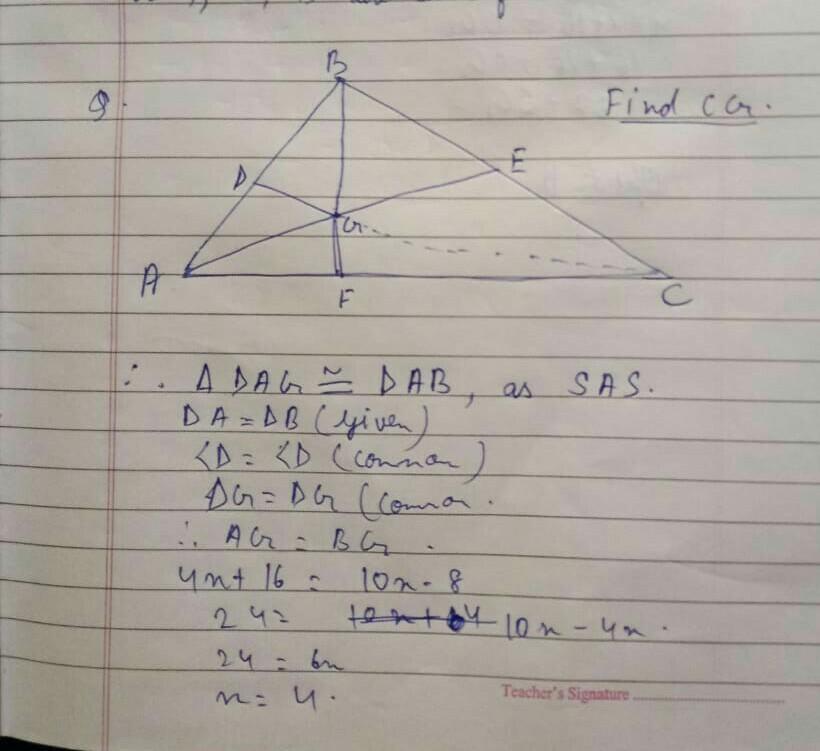 Q.
Find CG.
B
D
E
G
A
F
C
∴ Δ DAG ≅ DAB, as SAS.
DA = DB (Given)
<D = <D (common)
DG = DG (Common.
∴ AG = BG.
4x + 16 = 10x - 8
24 = 10x - 4x.
24 = 6x
x = 4.
Teacher's Signature